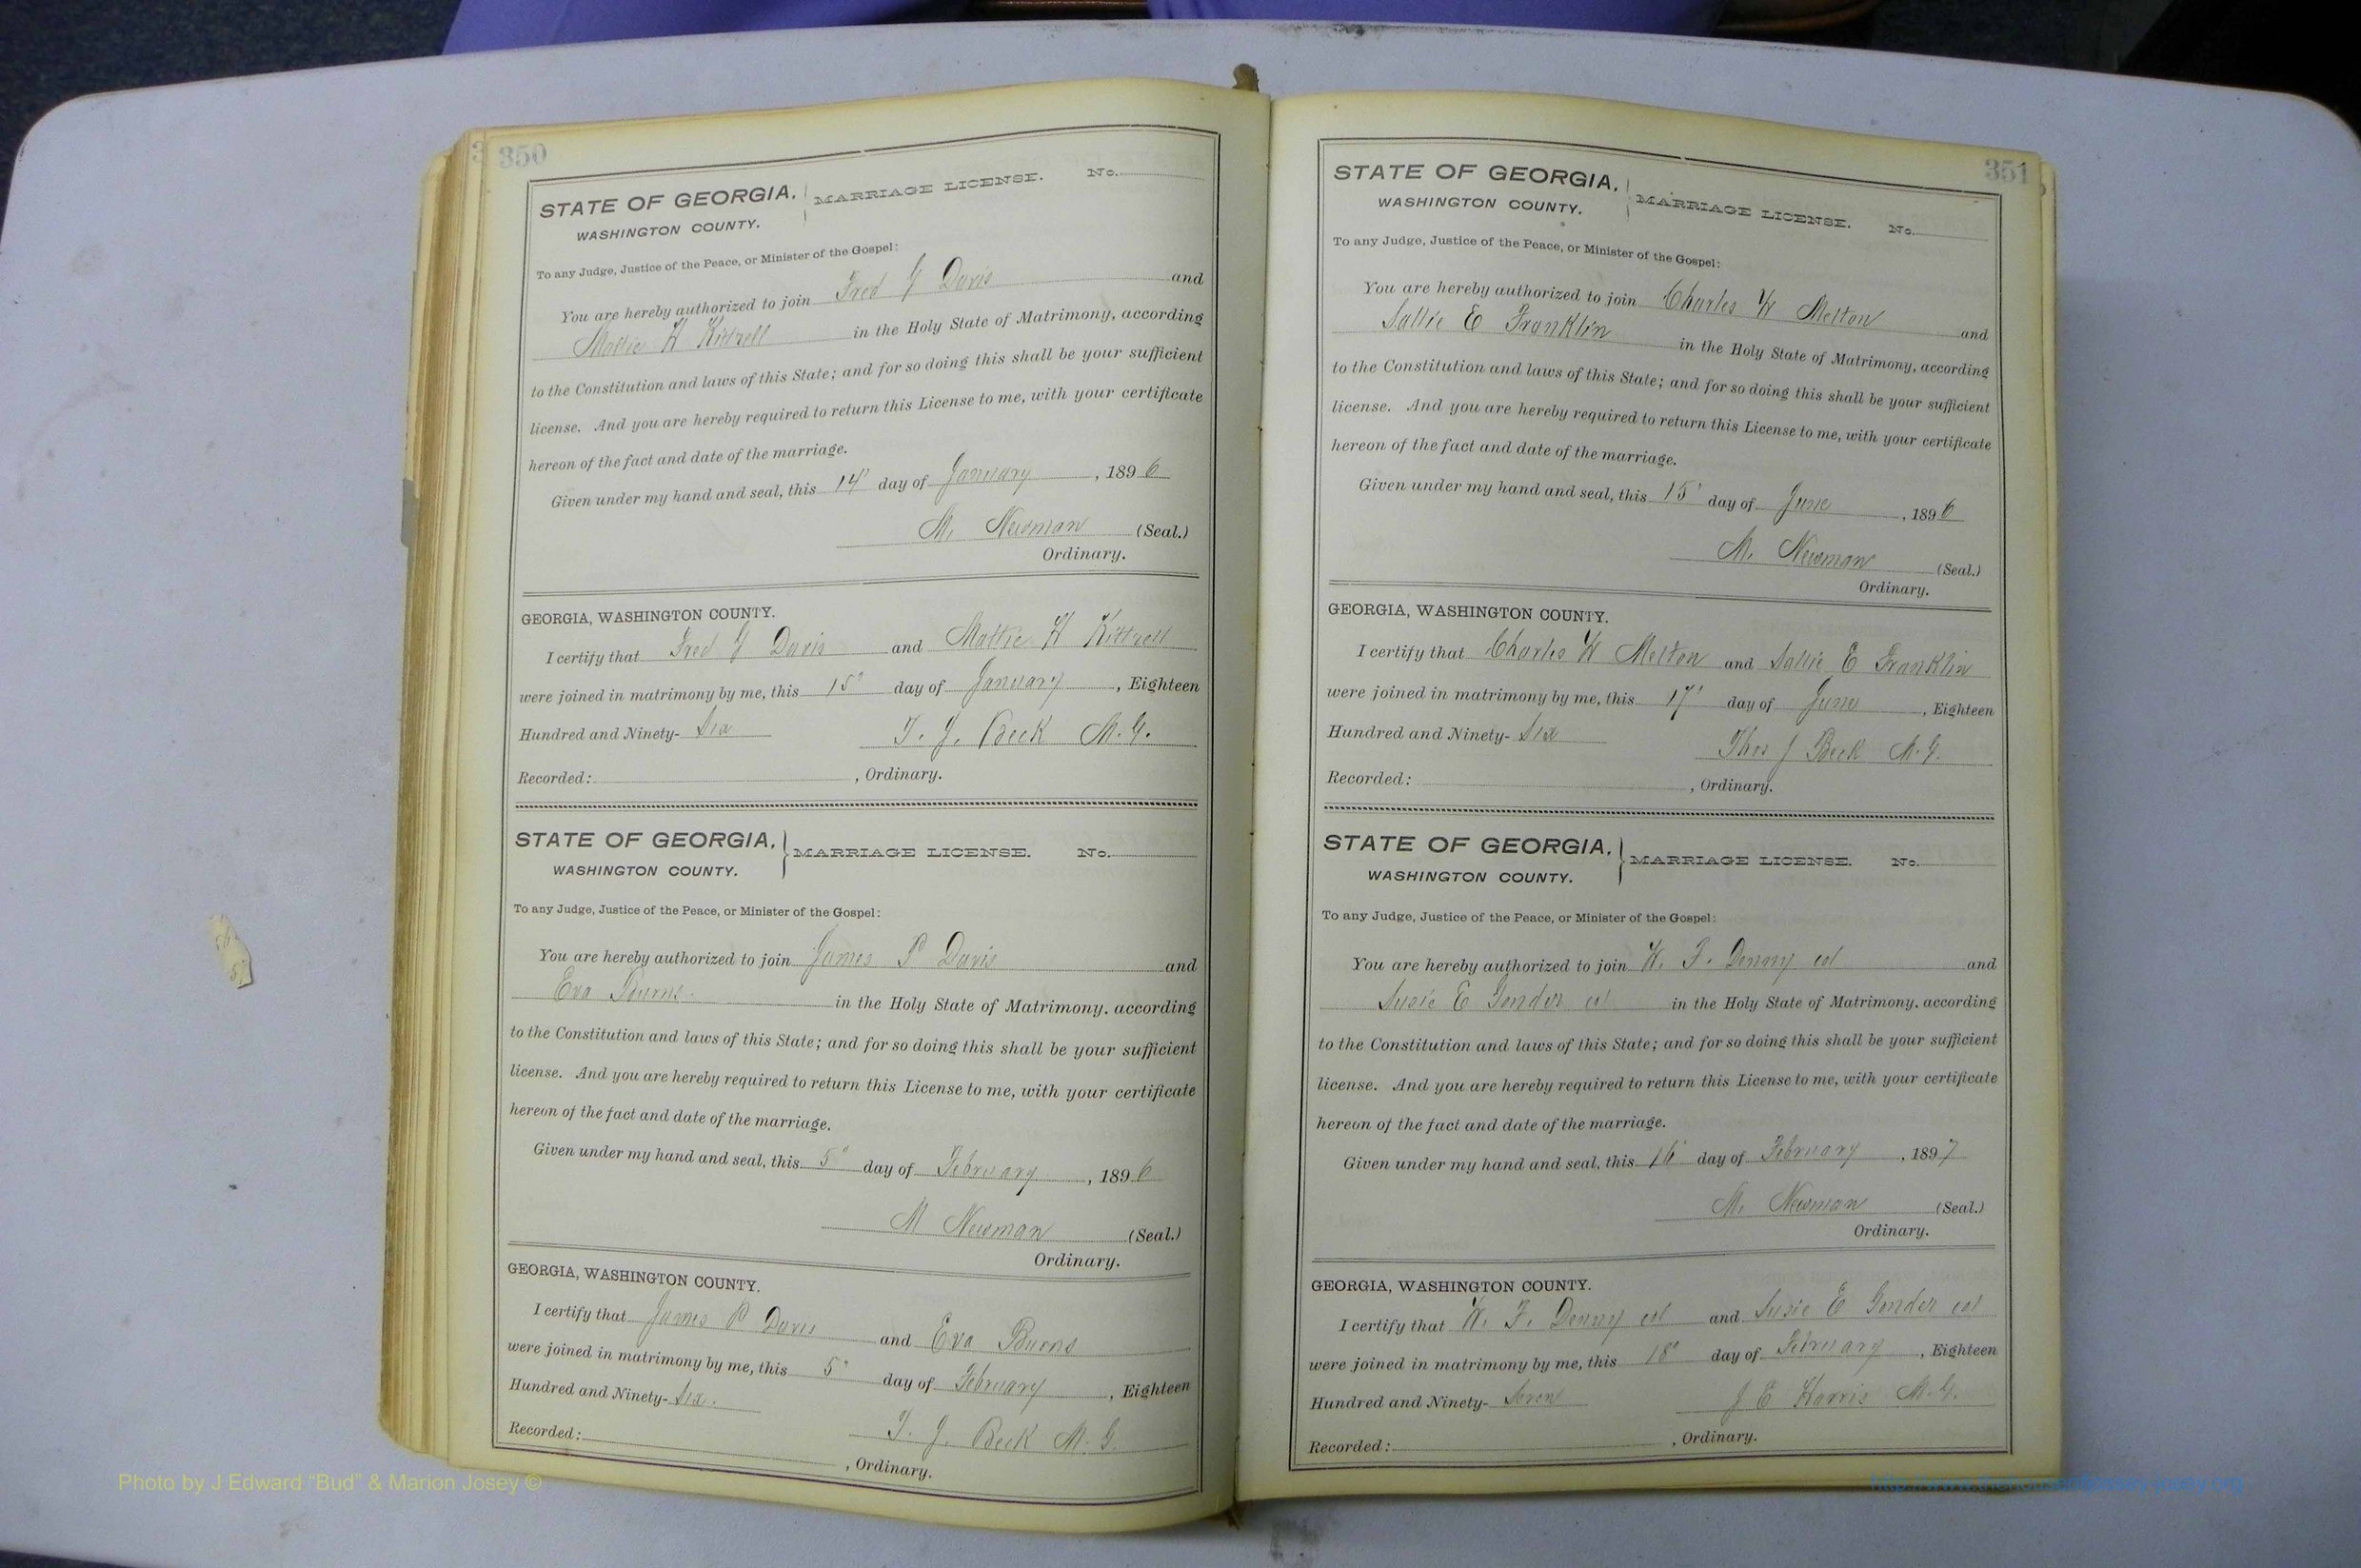 350
STATE OF GEORGIA, MARRIAGE LICENSE. No.
WASHINGTON COUNTY.
To any Judge, Justice of the Peace, or Minister of the Gospel:
You are hereby authorized to join Fred G Davis and
Mattie H Kittrell in the Holy State of Matrimony, according
to the Constitution and laws of this State; and for so doing this shall be your sufficient
license. And you are hereby required to return this License to me, with your certificate
hereon of the fact and date of the marriage.
Given under my hand and seal, this 14" day of January, 1896
M. Newman (Seal.)
Ordinary.
GEORGIA, WASHINGTON COUNTY.
I certify that Fred G Davis and Mattie H Kittrell
were joined in matrimony by me, this 15" day of January, Eighteen
Hundred and Ninety- Six T. J. Beck M. G.
Recorded: , Ordinary.
STATE OF GEORGIA, MARRIAGE LICENSE. No.
WASHINGTON COUNTY.
To any Judge, Justice of the Peace, or Minister of the Gospel:
You are hereby authorized to join James P Davis and
Eva Burns in the Holy State of Matrimony, according
to the Constitution and laws of this State; and for so doing this shall be your sufficient
license. And you are hereby required to return this License to me, with your certificate
hereon of the fact and date of the marriage.
Given under my hand and seal, this 5" day of February, 1896
M Newman (Seal.)
Ordinary.
GEORGIA, WASHINGTON COUNTY.
I certify that James P Davis and Eva Burns
were joined in matrimony by me, this 5" day of February, Eighteen
Hundred and Ninety- Six. T. J. Beck M. G.
Recorded: , Ordinary.
351
STATE OF GEORGIA, MARRIAGE LICENSE. No.
WASHINGTON COUNTY.
To any Judge, Justice of the Peace, or Minister of the Gospel:
You are hereby authorized to join Charles W Melton and
Sallie E Franklin in the Holy State of Matrimony, according
to the Constitution and laws of this State; and for so doing this shall be your sufficient
license. And you are hereby required to return this License to me, with your certificate
hereon of the fact and date of the marriage.
Given under my hand and seal, this 15" day of June, 1896
M. Newman (Seal.)
Ordinary.
GEORGIA, WASHINGTON COUNTY.
I certify that Charles W Melton and Sallie E Franklin
were joined in matrimony by me, this 17" day of June, Eighteen
Hundred and Ninety- Six Thos J Beck M. G.
Recorded: , Ordinary.
STATE OF GEORGIA, MARRIAGE LICENSE. No.
WASHINGTON COUNTY.
To any Judge, Justice of the Peace, or Minister of the Gospel:
You are hereby authorized to join W. F. Denny col and
Susie E Gonder col in the Holy State of Matrimony, according
to the Constitution and laws of this State; and for so doing this shall be your sufficient
license. And you are hereby required to return this License to me, with your certificate
hereon of the fact and date of the marriage.
Given under my hand and seal, this 16" day of February, 1897
M. Newman (Seal.)
Ordinary.
GEORGIA, WASHINGTON COUNTY.
I certify that W. F. Denny col and Susie E Gonder col
were joined in matrimony by me, this 18" day of February, Eighteen
Hundred and Ninety- Seven J E Harris M. G.
Recorded: , Ordinary.
Photo by J Edward “Bud” & Marion Josey ©